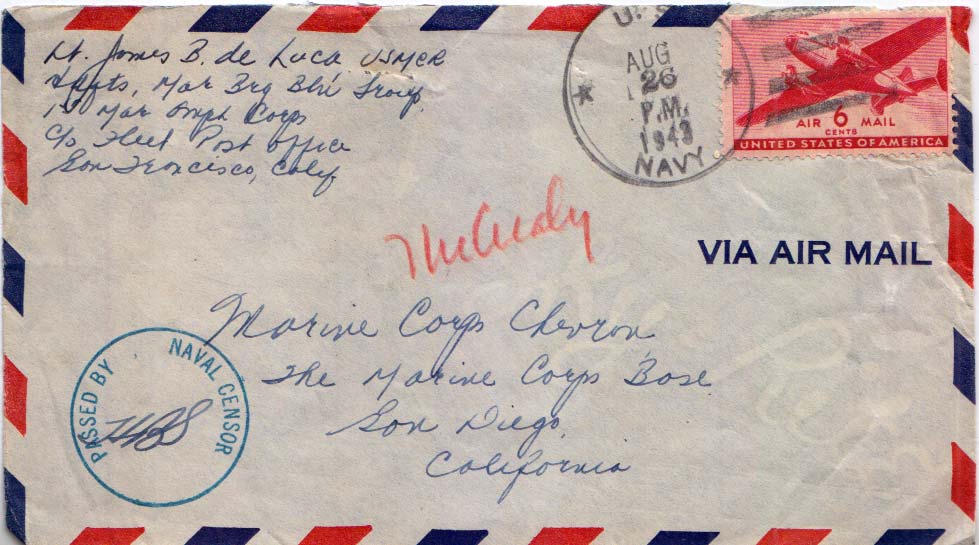 Lt. James B. de Luca USMCR
Hqts, Mar Brg Bln Group
1st Mar Amph Corps
c/o Fleet Post Office
San Francisco, Calif
U.S.
AUG
26
P.M.
1943
NAVY
AIR 6 MAIL
CENTS
UNITED STATES OF AMERICA
VIA AIR MAIL
Marine Corps Chevron
The Marine Corps Base
San Diego,
California
PASSED BY NAVAL CENSOR